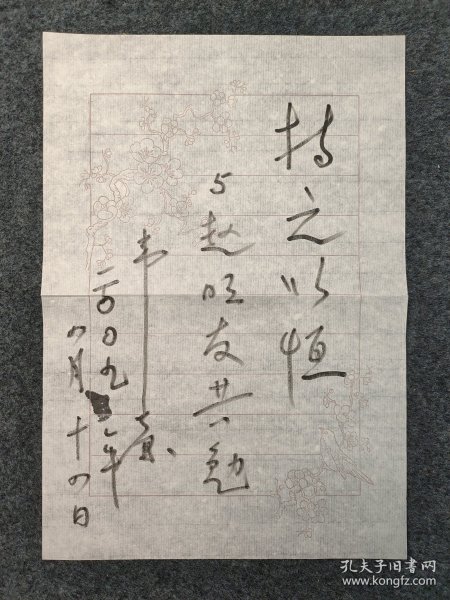 持之以恒
与赵旺友共勉
韦
二〇〇九年
四月十四日
孔夫子旧书网
www.kongfz.com